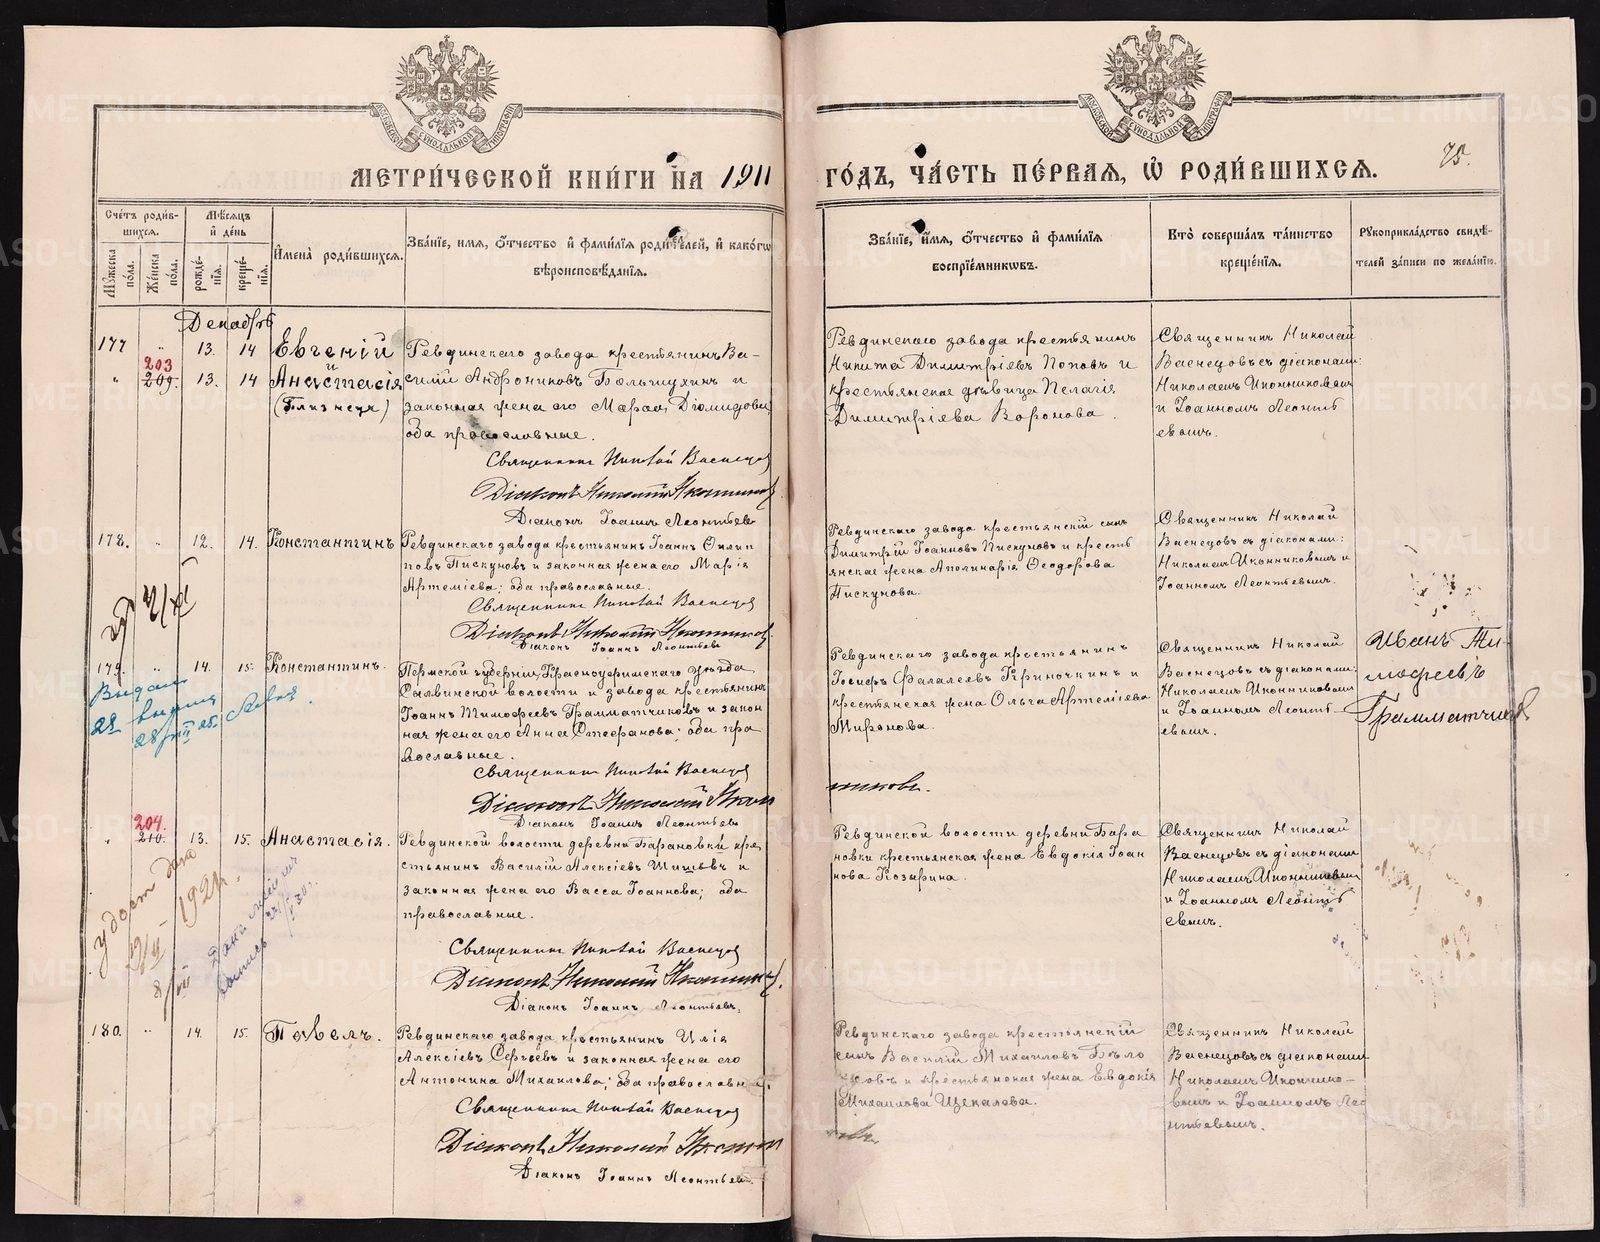 МЕТРИ́ЧЕСКОЙ КНИ́ГИ НА 1911
ГО́ДЪ, ЧА́СТЬ ПЕ́РВАЯ, Ѡ РОДИ́ВШИХСЯ.
75.
Сче́тъ роди́в-
шихся.
Му́жеска пола.
Же́нска по́ла.
Мѣ́сяцъ
и де́нь
рожде́-
нія.
креще́-
нія.
Имена̀ роди́вшихся.
Зва́ніе, имя, о́тчество и фами́лія роди́телей, и како́гѡ
вѣроисповѣ́данія.
Зва́ніе, и́мя, о́тчество и фами́лія
воспріе́мникѡвъ.
Кто̀ соверша́лъ та́инство
креще́нія.
Рукоприкла́дство свидѣ́-
телей за́писи по жела́нію.
Декабрь
177 " 13. 14 Евгеній
и
" 203 209. 13. 14 Анастасія
(Близнецы)
Ревдинскаго завода крестьянинъ Ва-
силій Андрониковъ Большухинъ и
законная жена его Марѳа Діомидова;
оба православные.
Священникъ Николай Васнецовъ
Діаконъ Николай Иконниковъ
Діаконъ Іоаннъ Леонтьевъ
Ревдинскаго завода крестьянинъ
Никита Димитріевъ Поповъ и
крестьянская дѣвица Пелагія
Димитріева Воронова.
Священникъ Николай
Васнецовъ съ діаконами:
Николаемъ Иконниковымъ
и Іоанномъ Леонть
евымъ.
178. " 12. 14. Константинъ
Ревдинскаго завода крестьянинъ Іоаннъ Филип
повъ Пискуновъ и законная жена его Марія
Артеміева; оба православные.
Священникъ Николай Васнецовъ
Діаконъ Николай Иконниковъ
Діаконъ Іоаннъ Леонтьевъ
Ревдинскаго завода крестьянскій сынъ
Димитрій Іоанновъ Пискуновъ и кресть
янская жена Аполинарія Ѳеодорова
Пискунова.
Священникъ Николай
Васнецовъ съ діаконами:
Николаемъ Иконниковымъ и
Іоанномъ Леонтьевымъ.
179. " 14. 15. Константинъ.
Пермской губерніи, Красноуфимскаго уѣзда
Сылвинской волости и завода крестьянинъ
Іоаннъ Тимоѳеевъ Грамматчиковъ и закон
ная жена его Анна Стефанова; оба пра
вославные.
Священникъ Николай Васнецовъ
Діаконъ Николай Икон
никовъ.
Діаконъ Іоаннъ Леонтьевъ
Ревдинскаго завода крестьянинъ
Іосифъ Фалалеевъ Криночкинъ и
крестьянская жена Ольга Артеміева
Миронова.
Священникъ Николай
Васнецовъ съ діаконами:
Николаемъ Иконниковымъ
и Іоанномъ Леонть
евымъ.
Иванъ Ти-
мофеевъ
Грамматчиков
" 204. 210. 13. 15. Анастасія.
Ревдинской волости деревни Барановки кре
стьянинъ Василій Алексіевъ Шишовъ и
законная жена его Васса Іоаннова; оба
православные.
Священникъ Николай Васнецовъ
Діаконъ Николай Иконниковъ.
Діаконъ Іоаннъ Леонтьевъ.
Ревдинской волости деревни Бара
новки крестьянская жена Евдокія Іоан
нова Козырина.
Священникъ Николай
Васнецовъ съ діаконами
Николаемъ Иконниковымъ
и Іоанномъ Леонть
евымъ.
180. " 14. 15. Павелъ.
Ревдинскаго завода крестьянинъ Илія
Алексіевъ Сергѣевъ и законная жена его
Антонина Михаилова; оба православные.
Священникъ Николай Васнецовъ
Діаконъ Николай Иконни
Діаконъ Іоаннъ Леонтьевъ.
Ревдинскаго завода крестьянскій
сынъ Василій Михаиловъ Бѣло
усовъ и крестьянская жена Евдокія
Михаилова Щекалева.
Священникъ Николай
Васнецовъ съ діаконами
Николаемъ Иконнико-
вымъ и Іоанномъ Лео
нтьевымъ.